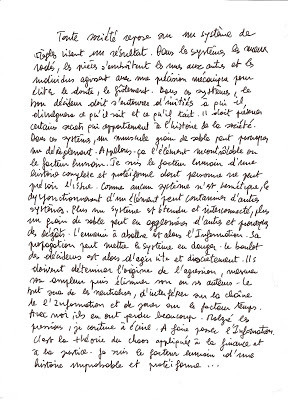 Toute société repose sur un système de
règles visant un résultat. Dans les systèmes, les mieux
rodés, les pièces s'emboîtent les unes aux autres et les
individus agissent avec une précision mécanique pour
éviter le doute, le glissement. Dans ces systèmes, le
bon décideur doit s'entourer d'initiés à qui il
divulguera ce qu'il sait et ce qu'il tait. Il doit préserver
certains secrets qui appartiennent à l'histoire de la société.
Dans ces systèmes, un minuscule grain de sable peut provoquer
un dérèglement. Appelons-ça l'élément incontrôlable ou
le facteur humain. Je suis le facteur humain d'une
histoire complexe et protéiforme dont personne ne peut
prévoir l'issue. Comme aucun système n'est hermétique, le
dysfonctionnement d'un élément peut contaminer d'autres
systèmes. Plus un système est étendu et interconnecté, plus
un grain de sable peut en agglomérer d'autres et provoquer
des dégâts. L'ennemi à abattre est alors l'Information. Sa
propagation peut mettre le système en danger. Le boulot
des décideurs est alors d'agir vite et discrètement. Ils
doivent déterminer l'origine de l'agression, mesurer
son ampleur puis éliminer son ou ses auteurs. Le
but sera de les neutraliser, d'interférer sur la chaîne
de l'Information et de jouer sur le facteur temps.
Avec moi, ils en ont perdu beaucoup. Malgré les
pressions, je continue à écrire. A faire passer l'Information.
C'est la théorie du chaos appliquée à la finance et
à la justice. Je suis le facteur humain d'une
histoire improbable et protéiforme...